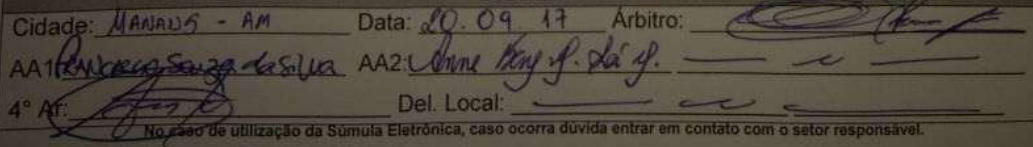 Cidade: MANAUS - AM Data: 20.09.17 Árbitro:
AA1: Souza da Silva AA2: Anne
4° Ar: Del. Local:
No caso de utilização da Súmula Eletrônica, caso ocorra dúvida entrar em contato com o setor responsável.